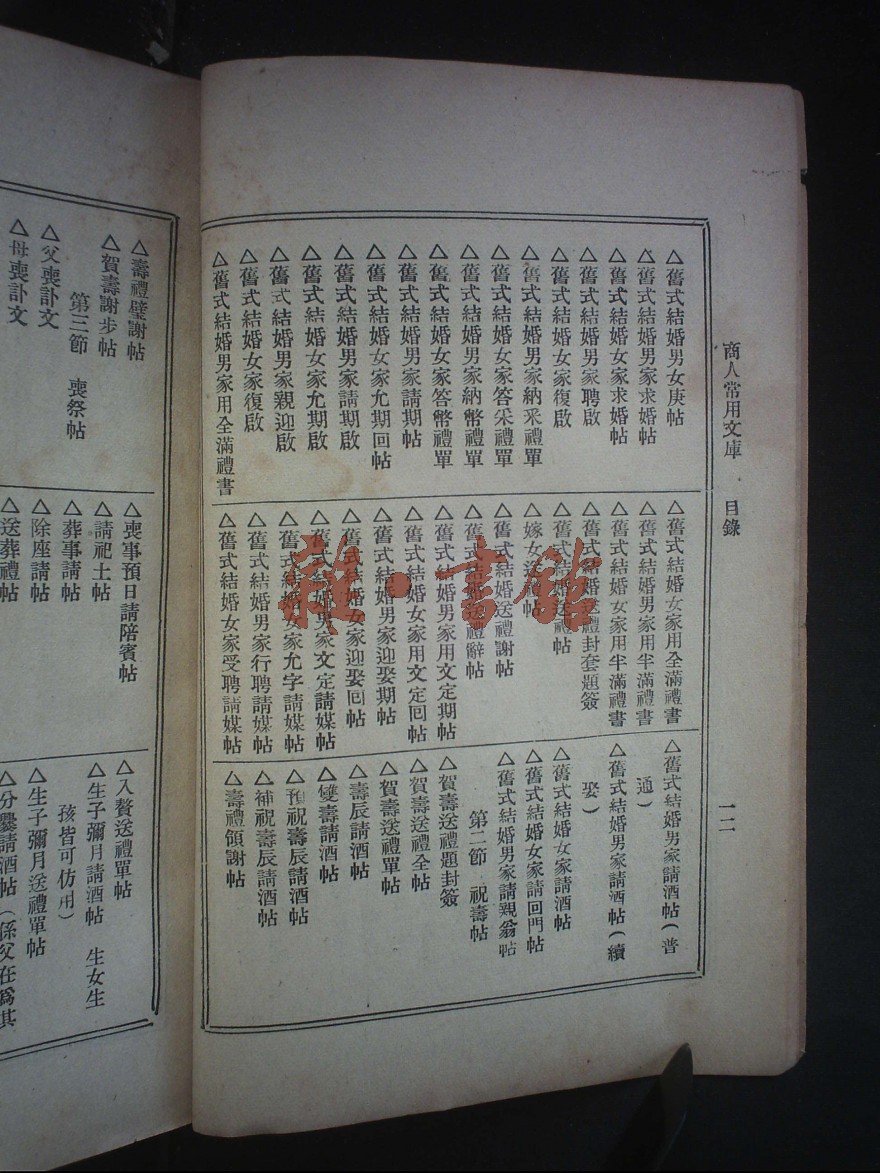 商人常用文庫　目錄
一二
△舊式結婚男女庚帖
△舊式結婚男家求婚帖
△舊式結婚女家求婚帖
△舊式結婚男家聘啟
△舊式結婚女家復啟
△舊式結婚男家納采禮單
△舊式結婚女家答采禮單
△舊式結婚男家納幣禮單
△舊式結婚女家答幣禮單
△舊式結婚男家請期帖
△舊式結婚女家允期回帖
△舊式結婚男家請期啟
△舊式結婚女家允期啟
△舊式結婚男家親迎啟
△舊式結婚女家復啟
△舊式結婚男家用全滿禮書
△舊式結婚女家用全滿禮書
△舊式結婚男家用半滿禮書
△舊式結婚女家用半滿禮書
△舊式結婚送禮封套題簽
△舊式結婚送禮帖
△嫁女送帖
△舊式結婚送禮謝帖
△舊式結婚送禮辭帖
△舊式結婚男家用文定期帖
△舊式結婚女家用文定回帖
△舊式結婚男家迎娶期帖
△舊式結婚女家迎娶回帖
△舊式結婚男家文定請媒帖
△舊式結婚女家允字請媒帖
△舊式結婚男家行聘請媒帖
△舊式結婚女家受聘請媒帖
△舊式結婚男家請酒帖（普
通）
△舊式結婚男家請酒帖（續
娶）
△舊式結婚女家請酒帖
△舊式結婚女家請回門帖
△舊式結婚男家請親翁帖
第二節　祝壽帖
△賀壽送禮題封簽
△賀壽送禮全帖
△賀壽送禮單帖
△壽辰請酒帖
△雙壽請酒帖
△預祝壽辰請酒帖
△補祝壽辰請酒帖
△壽禮領謝帖
△壽禮璧謝帖
△賀壽謝步帖
第三節　喪祭帖
△父喪訃文
△母喪訃文
△喪事預日請陪賓帖
△請祀土帖
△葬事請帖
△除座請帖
△送葬禮帖
△入贅送禮單帖
△生子彌月請酒帖　生女生
孩皆可仿用）
△生子彌月送禮單帖
△分爨請酒帖（係父在爲其
雜·書館